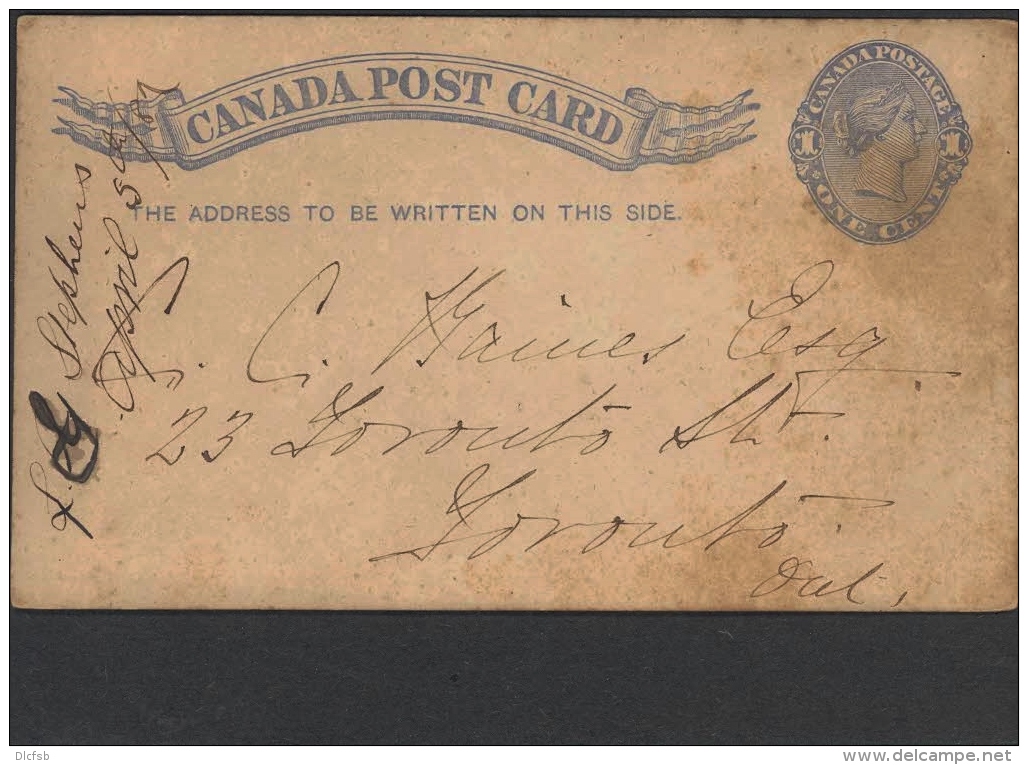 CANADA POST CARD
CANADA POSTAGE
1 1
ONE CENT
THE ADDRESS TO BE WRITTEN ON THIS SIDE.
Stephens
April 5th/87
C. Haines Esq
23 Toronto St.
Toronto
Ont.
Dlcfsb
www.delcampe.net